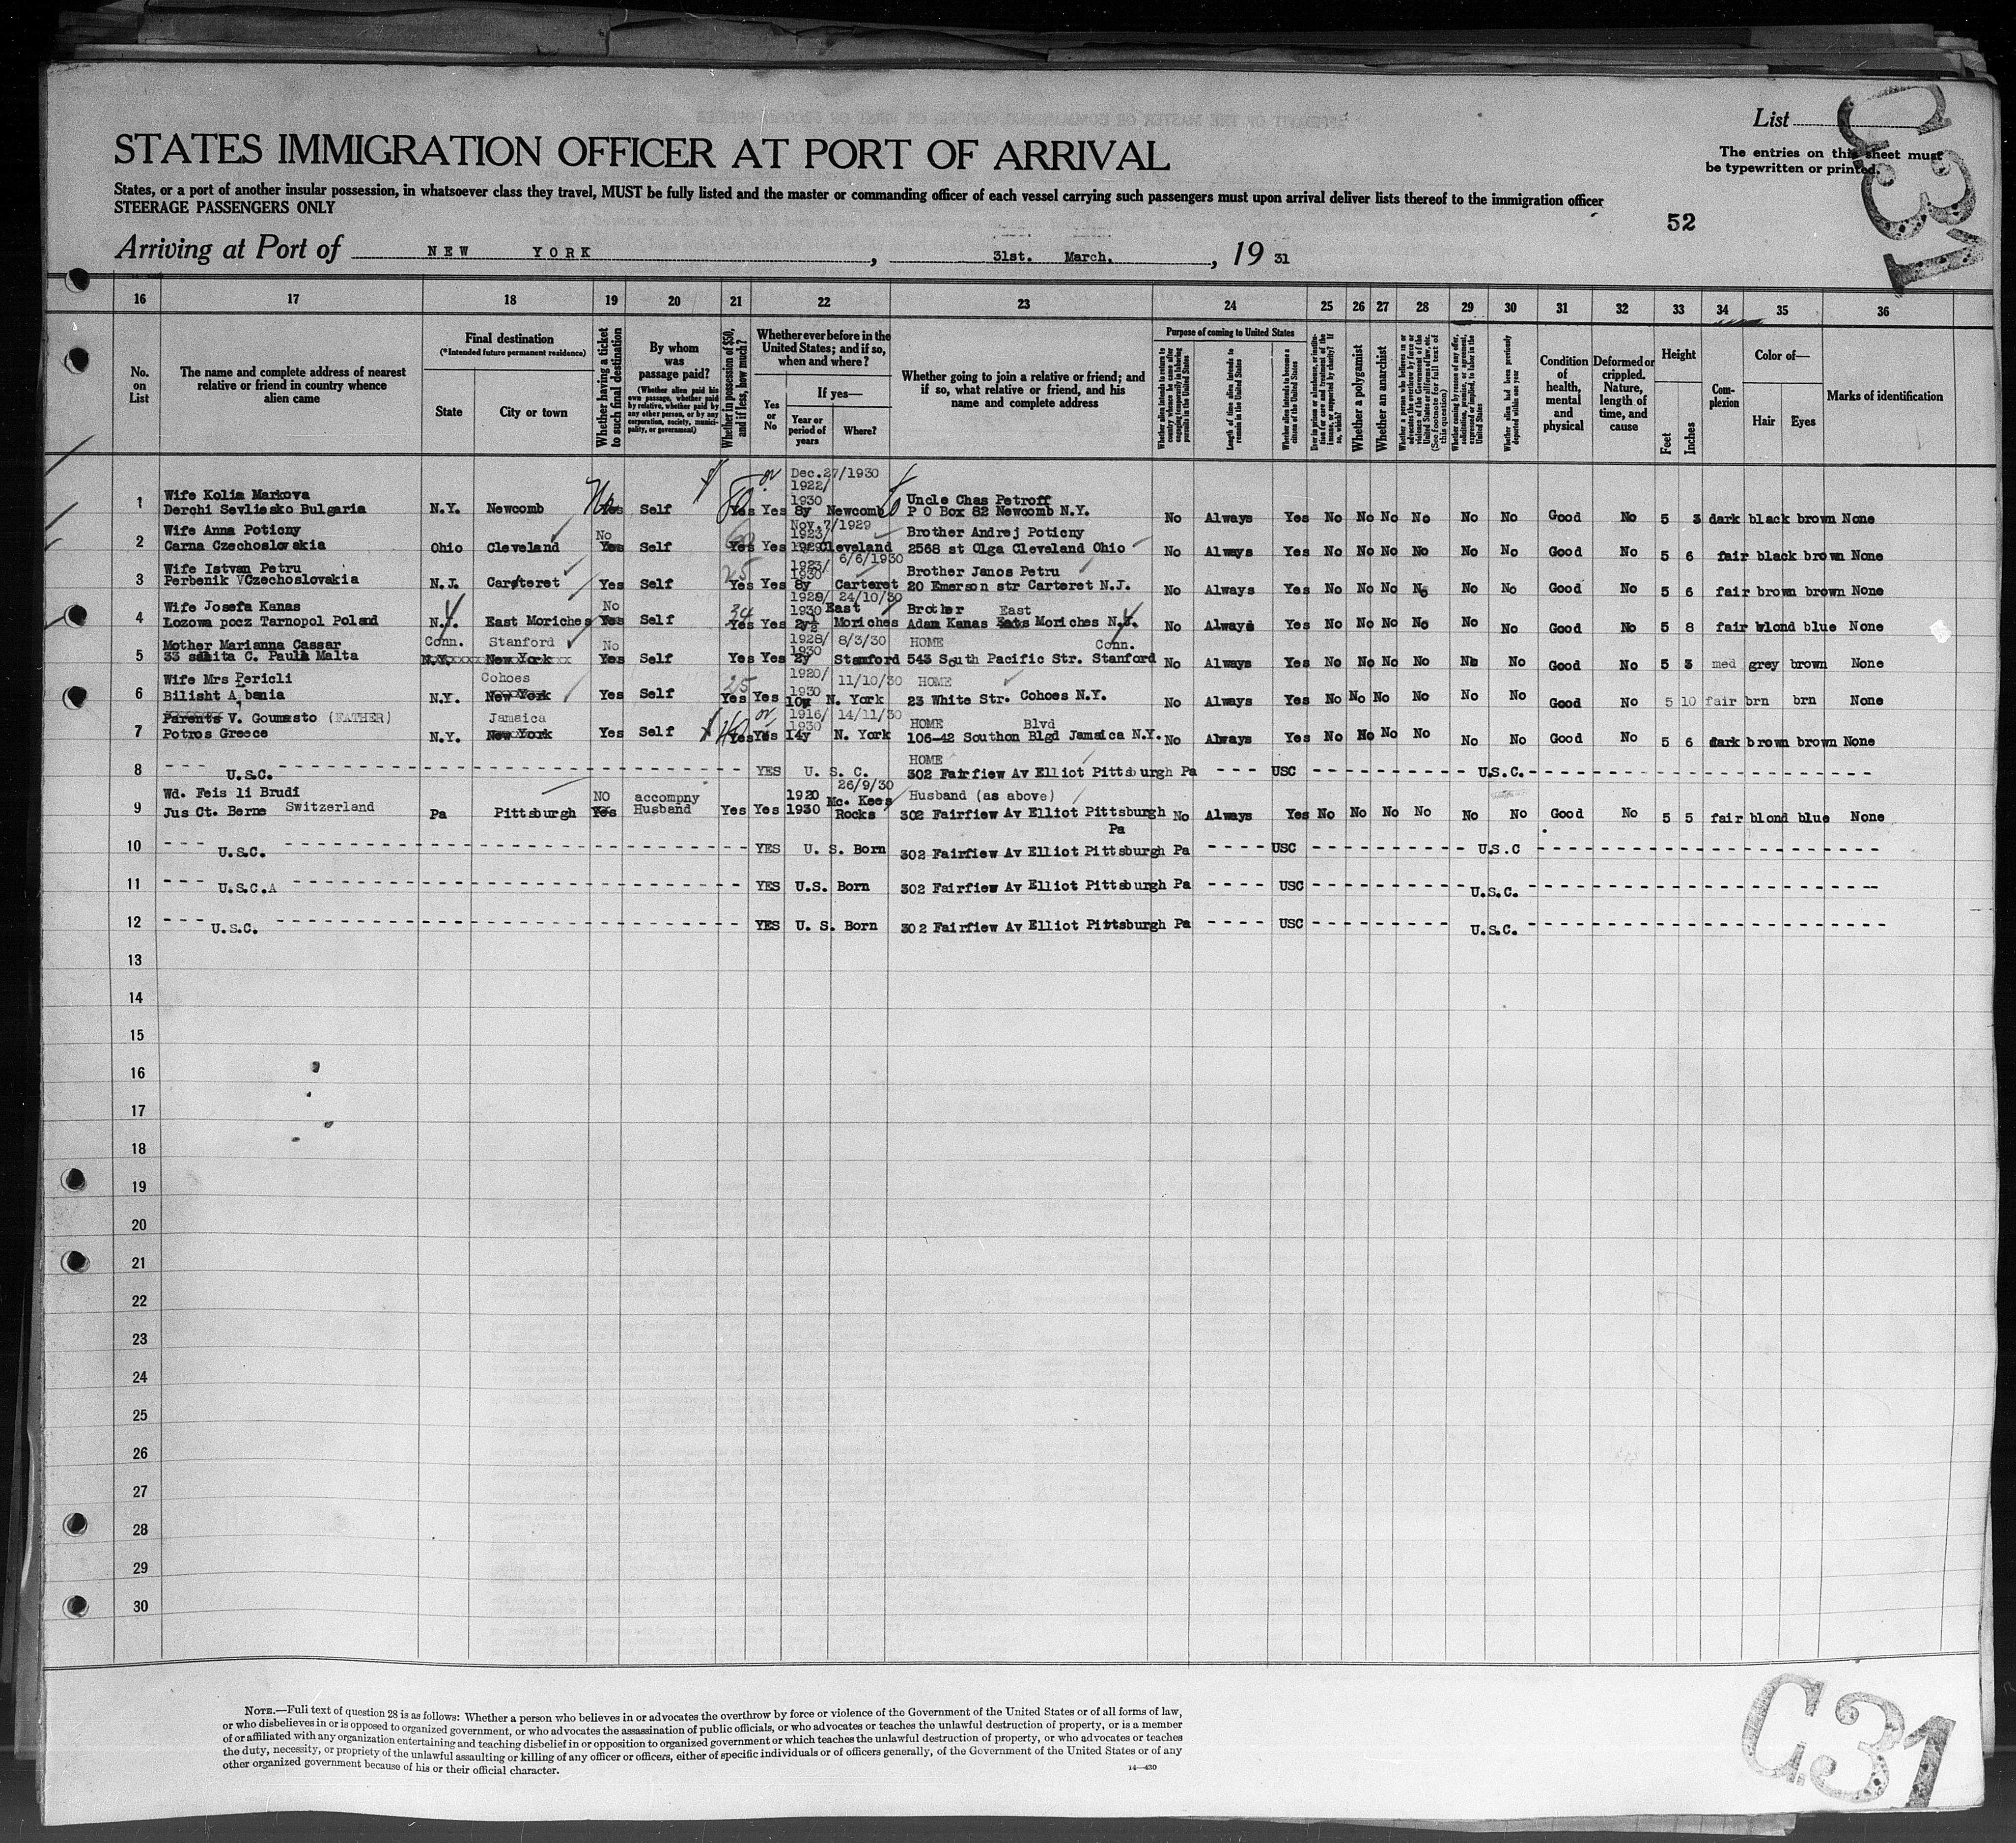 List
The entries on this sheet must
be typewritten or printed.
C31
STATES IMMIGRATION OFFICER AT PORT OF ARRIVAL
States, or a port of another insular possession, in whatsoever class they travel, MUST be fully listed and the master or commanding officer of each vessel carrying such passengers must upon arrival deliver lists thereof to the immigration officer
STEERAGE PASSENGERS ONLY
52
Arriving at Port of NEW YORK, 31st. March., 19 31
16 17 18 19 20 21 22 23 24 25 26 27 28 29 30 31 32 33 34 35 36
No. on List
The name and complete address of nearest relative or friend in country whence alien came
Final destination
(*Intended future permanent residence)
State
City or town
Whether having a ticket to such final destination
By whom was passage paid?
(Whether alien paid his own passage, whether paid by relative, whether paid by any other person, or by any corporation, society, municipality, or government)
Whether in possession of $50, and if less, how much?
Whether ever before in the United States; and if so, when and where?
Yes or No
If yes—
Year or period of years
Where?
Whether going to join a relative or friend; and if so, what relative or friend, and his name and complete address
Purpose of coming to United States
Length of time alien intends to remain in the United States
Whether alien intends to become a citizen of the United States
Whether a polygamist
Whether an anarchist
(See footnote for full text of this question)
Whether alien had been previously deported within one year
Condition of health, mental and physical
Deformed or crippled. Nature, length of time, and cause
Height
Feet
Inches
Complexion
Color of—
Hair
Eyes
Marks of identification
Dec.27/1930
1922/
1 Wife Kolia Markova 1930 Uncle Chas Petroff
Derchi Sevliesko Bulgaria N.Y. Newcomb No Yes Self 80 Yes Yes 8y Newcomb P O Box 82 Newcomb N.Y. No Always Yes No No No No No No Good No 5 3 dark black brown None
Nov.7/1929
2 Wife Anna Poticny No 1923/ Brother Andrej Poticny
Carna Czechoslovakia Ohio Cleveland Yes Self Yes Yes Cleveland 2568 st Olga Cleveland Ohio No Always Yes No No No No No No Good No 5 6 fair black brown None
1923/ 6/6/1930
3 Wife Istvan Petru 25 1930 Brother Janos Petru
Perbenik Czechoslovakia N.J. Carteret Yes Self Yes Yes 8y Carteret 20 Emerson str Carteret N.J. No Always Yes No No No No No No Good No 5 6 fair brown brown None
1928/ 24/10/30
4 Wife Josefa Kanas No 34 1930 East Brother East
Lozowa pocz Tarnopol Poland N.Y. East Moriches Yes Self Yes Yes 2y½ Moriches Adam Kanas Eats Moriches N.Y. No Always Yes No No No No No No Good No 5 8 fair blond blue None
5 Mother Marianna Cassar Conn. Stanford No 1928/ 8/3/30 HOME Conn.
1930
C. Paula Malta N.Y. New York Yes Self Yes Yes 2y Stamford 543 South Pacific Str. Stanford No Always Yes No No No No No No Good No 5 3 med grey brown None
6 Wife Mrs Pericli Cohoes 25 1920/ 11/10/30 HOME
1930
Bilisht Albania N.Y. New York Yes Self Yes Yes 10y N. York 23 White Str. Cohoes N.Y. No Always Yes No No No No No No Good No 5 10 fair brn brn None
7 Parents V. Goumasto (FATHER) Jamaica 1916/ 14/11/30 HOME Blvd
1930
Potros Greece N.Y. New York Yes Self Yes Yes 14y N. York 106-42 Southon Blgd Jamaica N.Y. No Always Yes No No No No No No Good No 5 6 dark brown brown None
HOME
8 --- U.S.C. --- YES U. S. C. 302 Fairfiew Av Elliot Pittsburgh Pa ---- USC --- U.S.C. ---
26/9/30
9 Wd. Feis li Brudi NO accompny 1920 Mc. Kees Husband (as above)
Jus Ct. Berne Switzerland Pa Pittsburgh Yes Husband Yes Yes 1930 Rocks 302 Fairfiew Av Elliot Pittsburgh No Always Yes No No No No No No Good No 5 5 fair blond blue None
Pa
10 --- U.S.C. --- YES U. S. Born 302 Fairfiew Av Elliot Pittsburgh Pa ---- USC --- U.S.C ---
11 --- U.S.C.A --- YES U.S. Born 302 Fairfiew Av Elliot Pittsburgh Pa ---- USC --- U.S.C. ---
12 --- U.S.C. --- YES U. S. Born 302 Fairfiew Av Elliot Pittsburgh Pa ---- USC --- U.S.C. ---
13
14
15
16
17
18
19
20
21
22
23
24
25
26
27
28
29
30
NOTE.—Full text of question 28 is as follows: Whether a person who believes in or advocates the overthrow by force or violence of the Government of the United States or of all forms of law,
or who disbelieves in or is opposed to organized government, or who advocates the assassination of public officials, or who advocates or teaches the unlawful destruction of property, or is a member
of or affiliated with any organization entertaining and teaching disbelief in or opposition to organized government or which teaches the unlawful destruction of property, or who advocates or teaches
the duty, necessity, or propriety of the unlawful assaulting or killing of any officer or officers, either of specific individuals or of officers generally, of the Government of the United States or of any
other organized government because of his or their official character.
14—430
C31